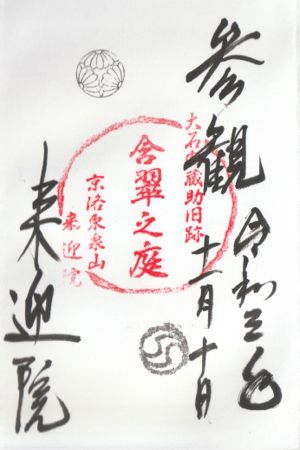 参観
令和三年
十一月十日
大石内蔵助旧跡
含翠之庭
京洛東泉山
来迎院
来迎院